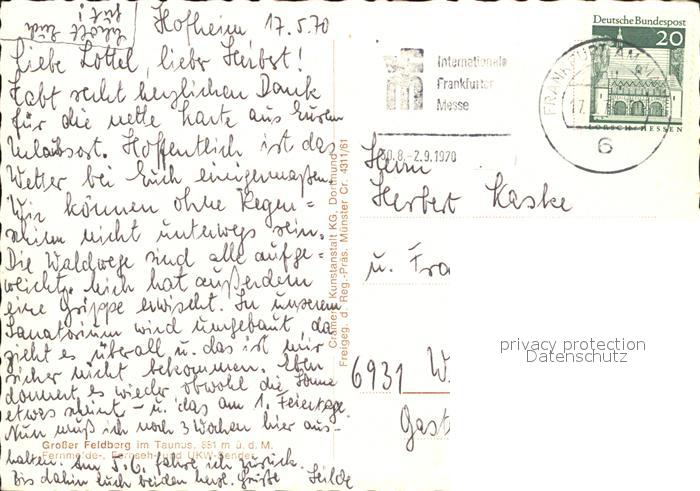 Hofheim 17.5.70
Erholt Euch
gut!
Liebe Lottel, lieber Herbert!
Habt recht herzlichen Dank
für die nette Karte aus Eurem
Urlaubsort. Hoffentlich ist das
Wetter bei Euch einigermaßen.
Wir können ohne Regen=
schirm nicht unterwegs sein.
Die Waldwege sind alle aufge=
weicht. Mich hat außerdem
eine Grippe erwischt. In unserem
Sanatorium wird umgebaut, da
zieht es überall u. das ist mir
sicher nicht bekommen. Eben
donnert es wieder obwohl die Sonne
etwas scheint - u. das am 1. Feiertage.
Nun muß ich noch 3 Wochen hier aus-
halten. Am 5.6. fahre ich zurück.
Bis dahin Euch beiden herzl. Grüße
Hilde
Großer Feldberg im Taunus, 881 m ü. d. M.
Fernmelde-, Fernseh- und UKW-Sender
Cramers Kunstanstalt KG, Dortmund
Freigeg. d. Reg.-Präs. Münster Cr. 4311/61
Internationale
Frankfurter
Messe
30.8.-2.9.1970
Deutsche Bundespost
20
LORSCH/HESSEN
FRANKFURT AM
17.
6
Herrn
Herbert Kaske
u. Fra
6931 W.
Gast
privacy protection
Datenschutz